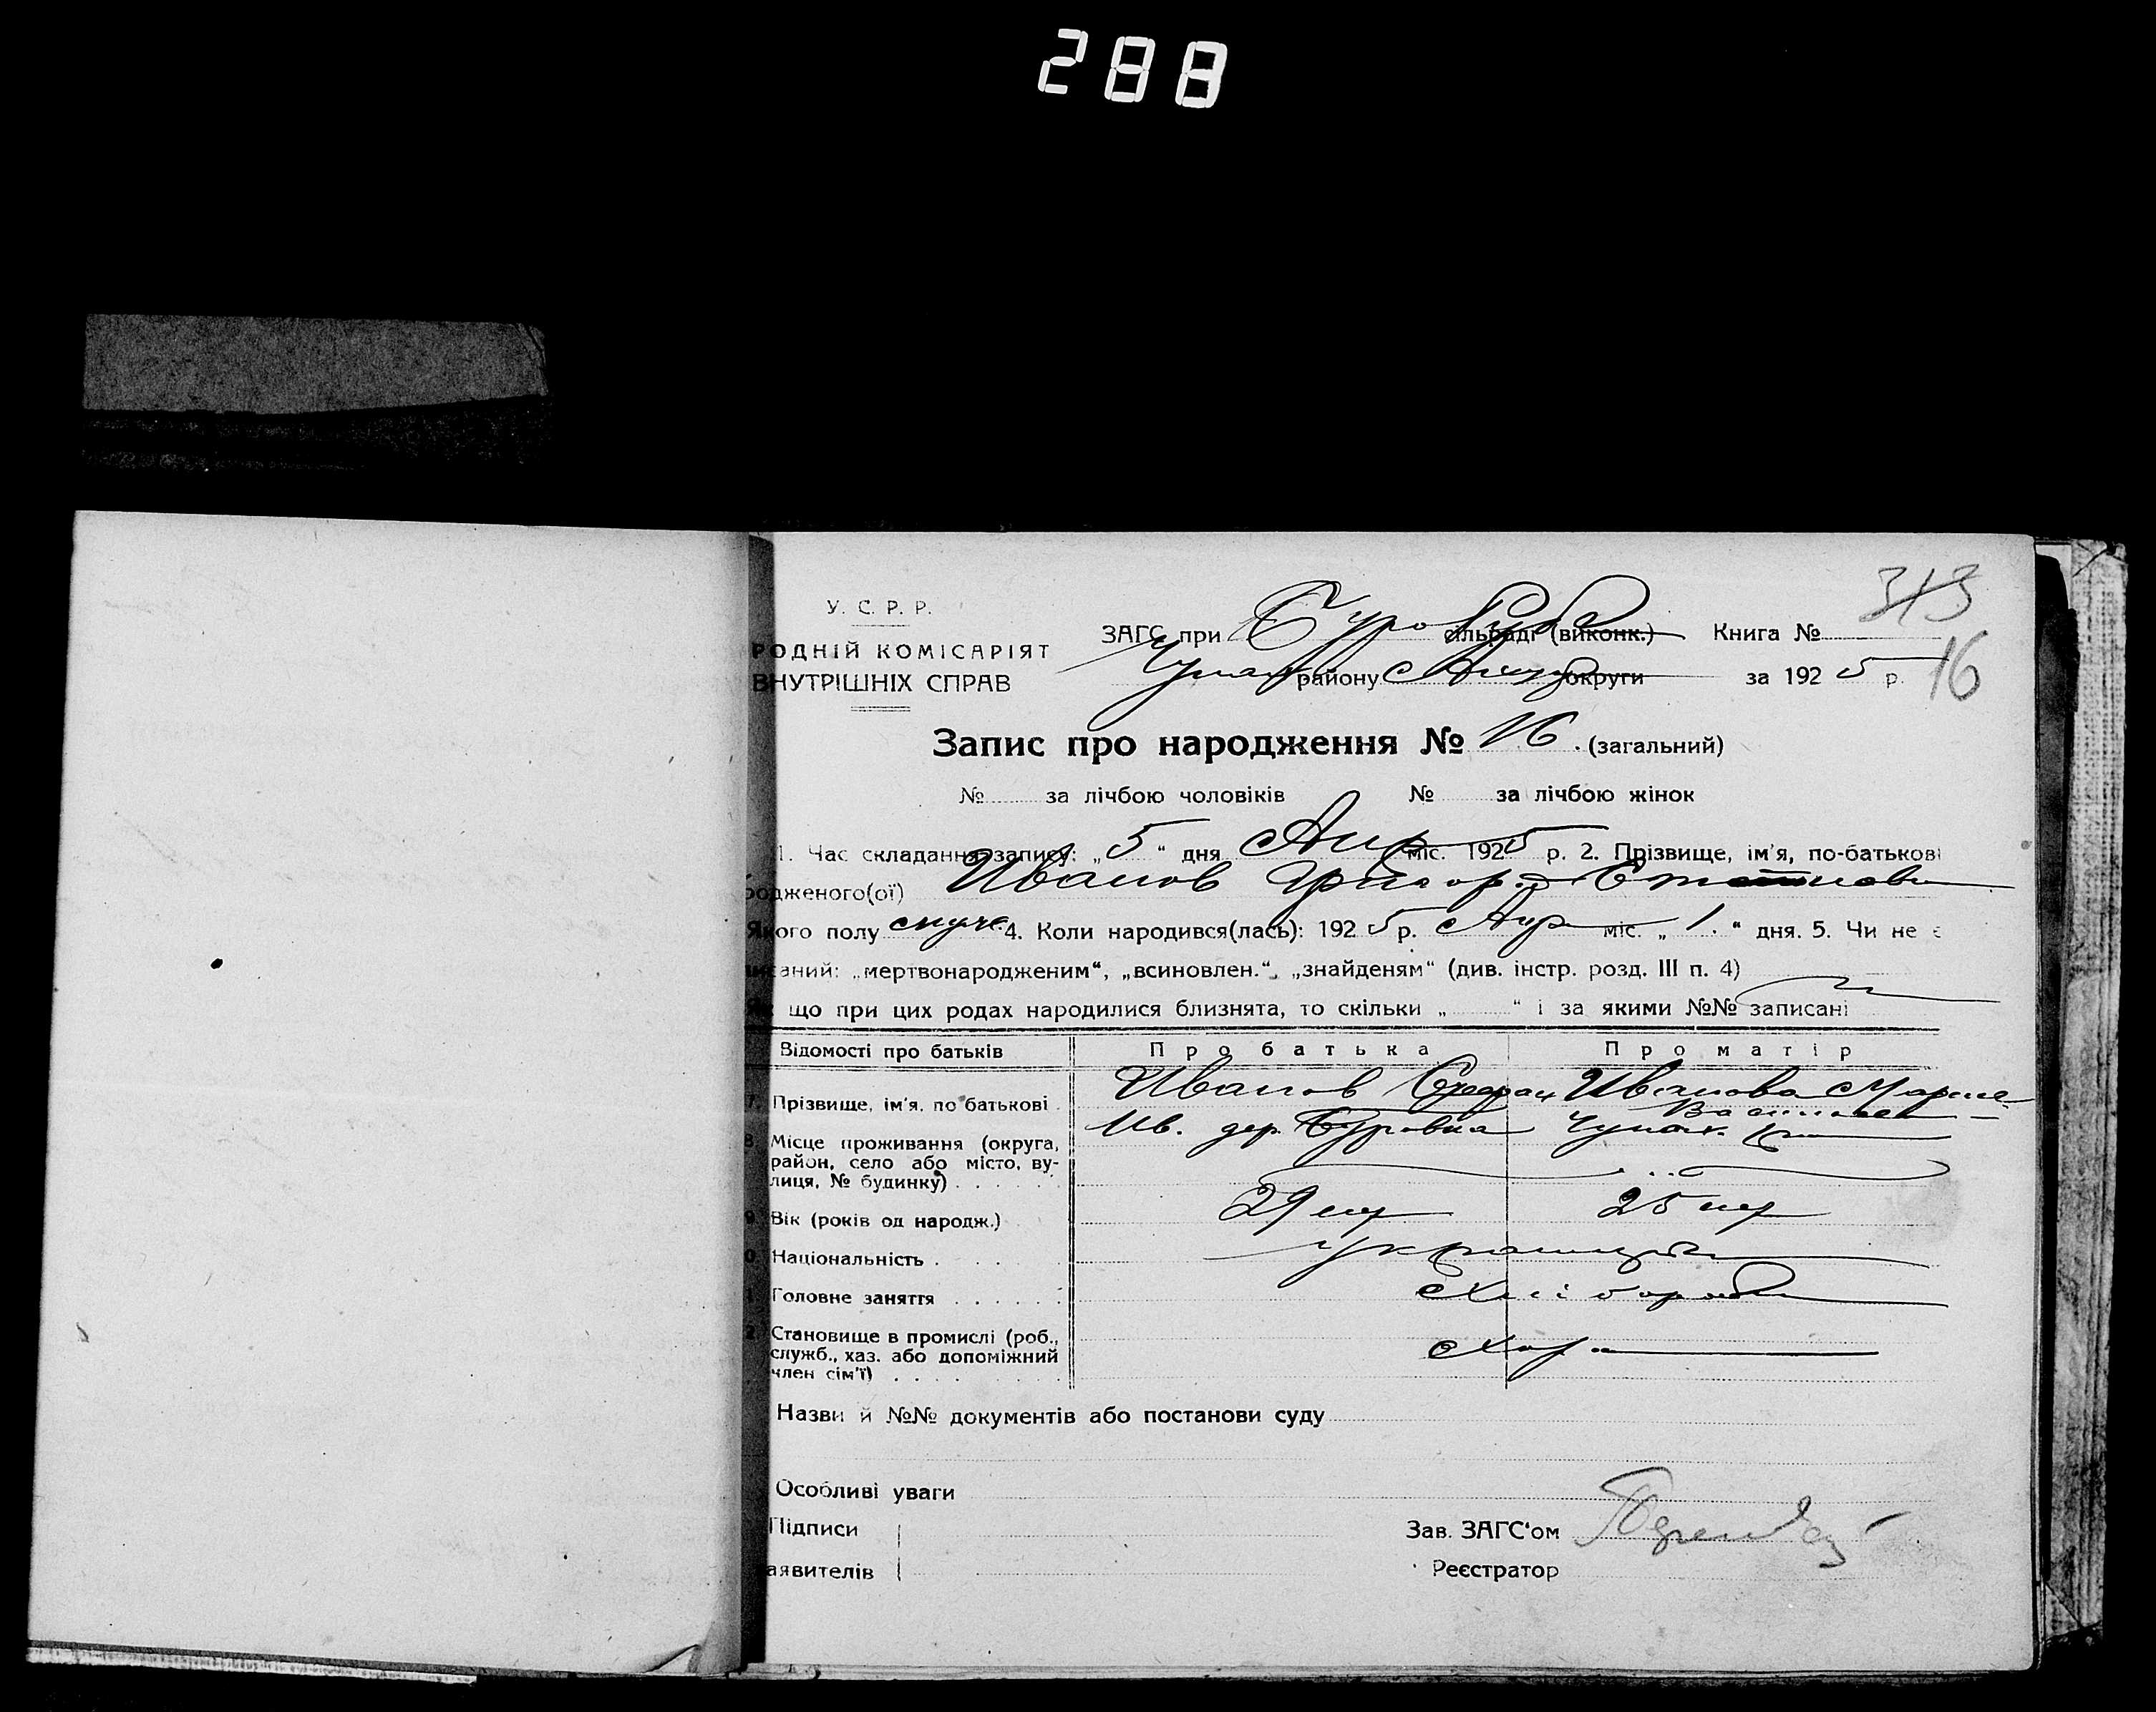 288
313
У. С. Р. Р.
РОДНІЙ КОМІСАРІЯТ
ВНУТРІШНІХ СПРАВ
ЗАГС при сільраді (виконк.) Книга №
району округи за 1925 р. 16
Запис про народження № 16. (загальний)
№ за лічбою чоловіків № за лічбою жінок
1. Час складання запису: „5“ дня Апр міс. 1925 р. 2. Прізвище, ім'я, по-батькові
одженого(ої) Иванов Григор.
Якого полу муже. 4. Коли народився(лась): 1925 р. Апр міс. „1.“ дня. 5. Чи не є
писаний: „мертвонародженим“, „всиновлен.“, „знайденям“ (див. інстр. розд. III п. 4)
що при цих родах народилися близнята, то скільки „ “ і за якими №№ записані
Відомості про батьків Про батька Про матір
7. Прізвище, ім'я, по батькові Иванов Стефан Иванова Мария
Ив. дер. Буровка
8. Місце проживання (округа,
район, село або місто, ву-
лиця, № будинку)
9. Вік (років од народж.) 29 25
0. Національність
1. Головне заняття Хлібороб
2. Становище в промислі (роб.,
служб., хаз. або допоміжний
член сім'ї)
Назви й №№ документів або постанови суду
Особливі уваги
Підписи Зав. ЗАГС'ом
аявителів Реєстратор